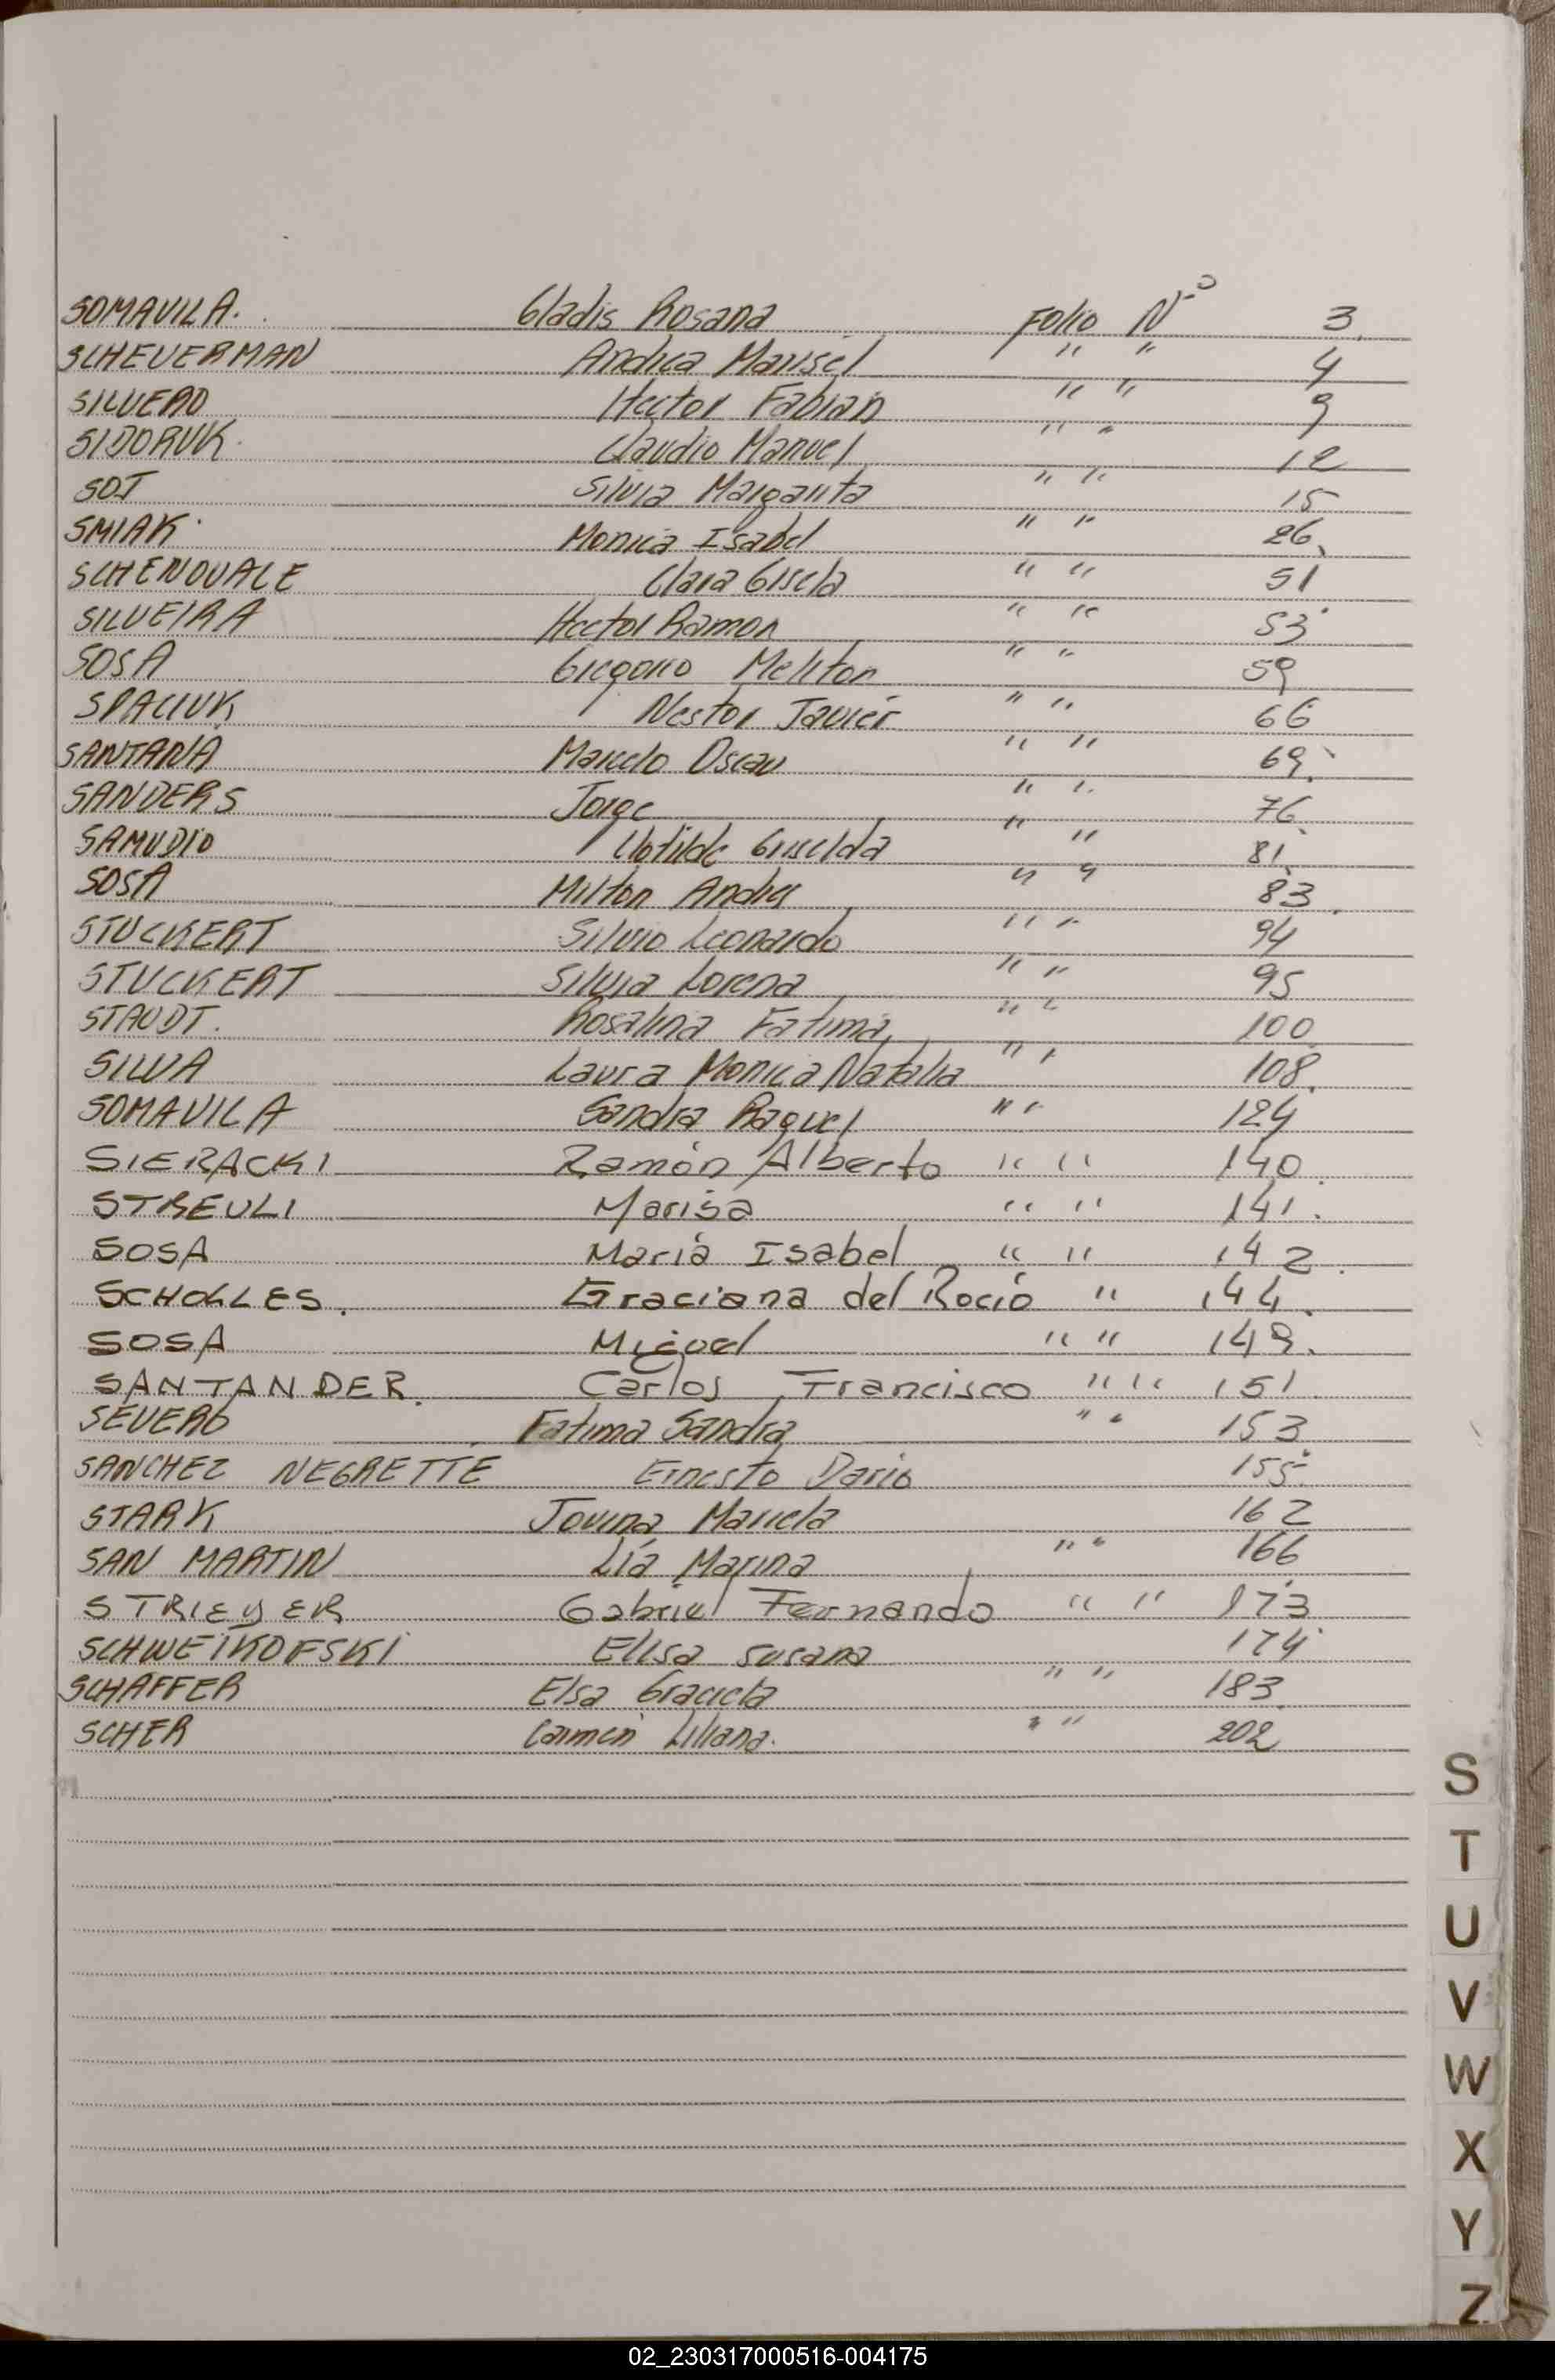 SOMAVILA. Gladis Rosana Folio Nº 3.
SCHEUERMAN Andrea Marisel " " 4
SILVERO Hector Fabian " " 9
SIDORUK. Claudio Manuel " " 12
SOT Silvia Margarita " " 15
SMIAK. Monica Isabel " " 26
SCHENOVALE Clara Gisela " " 51
SILVEIRA Hector Ramon " " 53
SOSA Gregorio Meliton " " 59
SPACIUK Nestor Javier " " 66
SANTANA Marcelo Oscar " " 69.
SANDERS Jorge " " 76
SAMUDIO Clotilde Griselda " " 81
SOSA Milton Andres " " 83.
STUCKERT Silvio Leonardo " " 94
STUCKERT Silvia Lorena " " 95
STAUDT. Rosalina Fatima " " 100
SILVA Laura Monica Natalia " " 108.
SOMAVILA Sandra Raquel " " 124
SIERACKI Ramón Alberto " " 140.
STREULI Marisa " " 141.
SOSA Maria Isabel " " 142.
SCHOLLES. Graciana del Rocío " 144.
SOSA Miguel " " 149.
SANTANDER. Carlos Francisco " " 151
SEVERO Fatima Sandra " " 153
SANCHEZ NEGRETTE Ernesto Dario 155.
STARK Jovina Mariela 162
SAN MARTIN Lía Marina " " 166
STRIEYER Gabriel Fernando " " 173
SCHWEIKOFSKI Elisa Susana 174
SCHAFFER Elsa Graciela " " 183
SCHER Carmen Liliana. " " 202
S
T
U
V
W
X
Y
Z
02_230317000516-004175